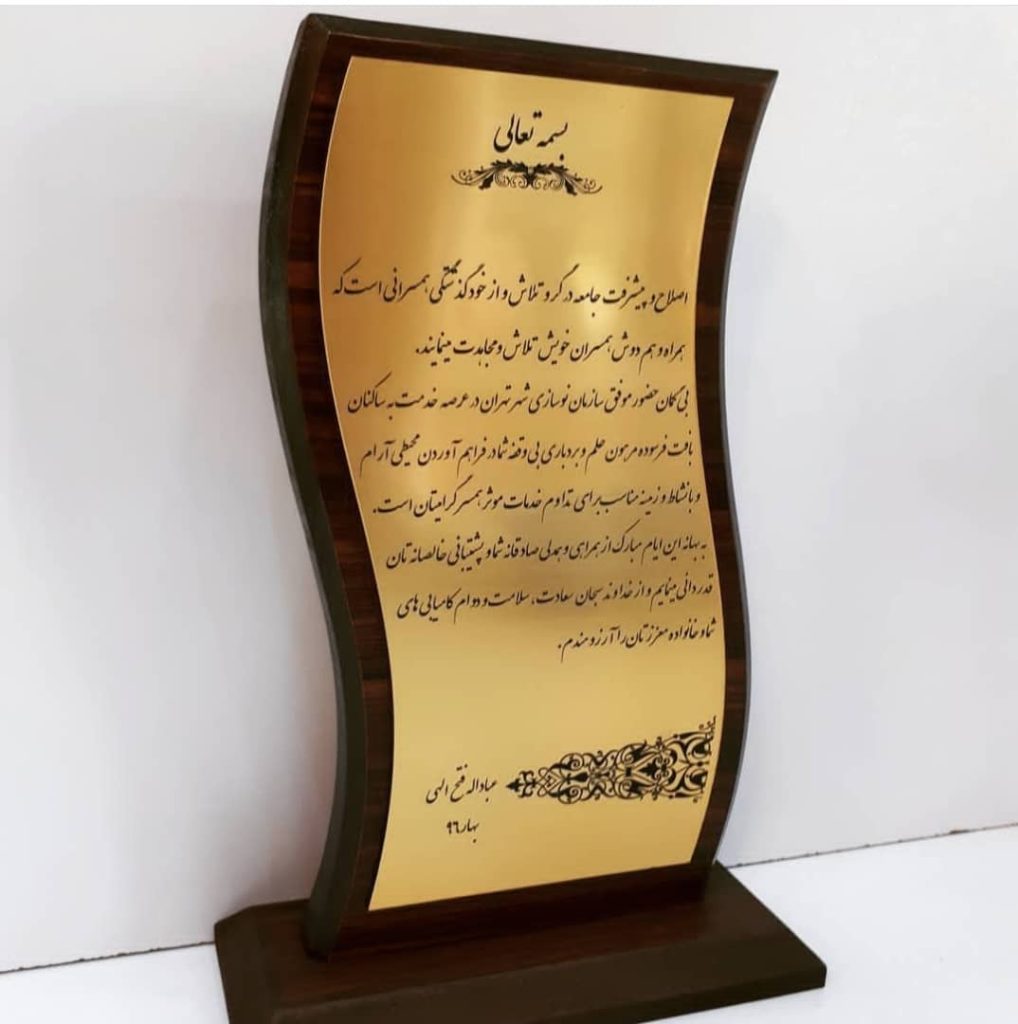 بسمه تعالی
اصلاح و پیشرفت جامعه در گرو تلاش و از خود گذشتگی همسرانی است که
همراه و هم دوش همسران خویش تلاش و مجاهدت مینمایند.
بی گمان حضور موفق سازمان نوسازی شهر تهران در عرصه خدمت به ساکنان
بافت فرسوده مرهون حلم و بردباری بی وقفه شما در فراهم آوردن محیطی آرام
و بانشاط و زمینه مناسب برای تداوم خدمات موثر همسر گرامیتان است.
به بهانه این ایام مبارک از همراهی و همدلی صادقانه شما و پشتیبانی خالصانه تان
قدردانی مینمایم و از خداوند سبحان سعادت، سلامت و دوام کامیابی های
شما و خانواده معززتان را آرزومندم.
عباداله فتح الهی
بهار ۹۶